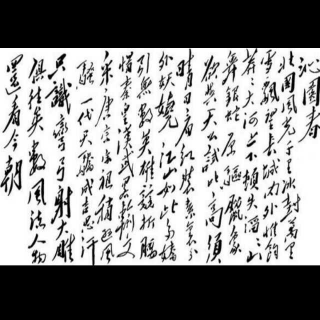 沁園春
北國風光千里冰封萬里
雪飄望長城内外惟餘
莽莽大河上下頓失滔滔山
舞銀蛇原驅臘象
欲與天公試比高須
晴日看紅裝素裹分
外妖嬈江山如此多嬌
引無數英雄競折腰
惜秦皇漢武略輸文
采唐宗宋祖稍遜風
騷一代天驕成吉思汗
只識彎弓射大雕
俱往矣數風流人物
還看今朝